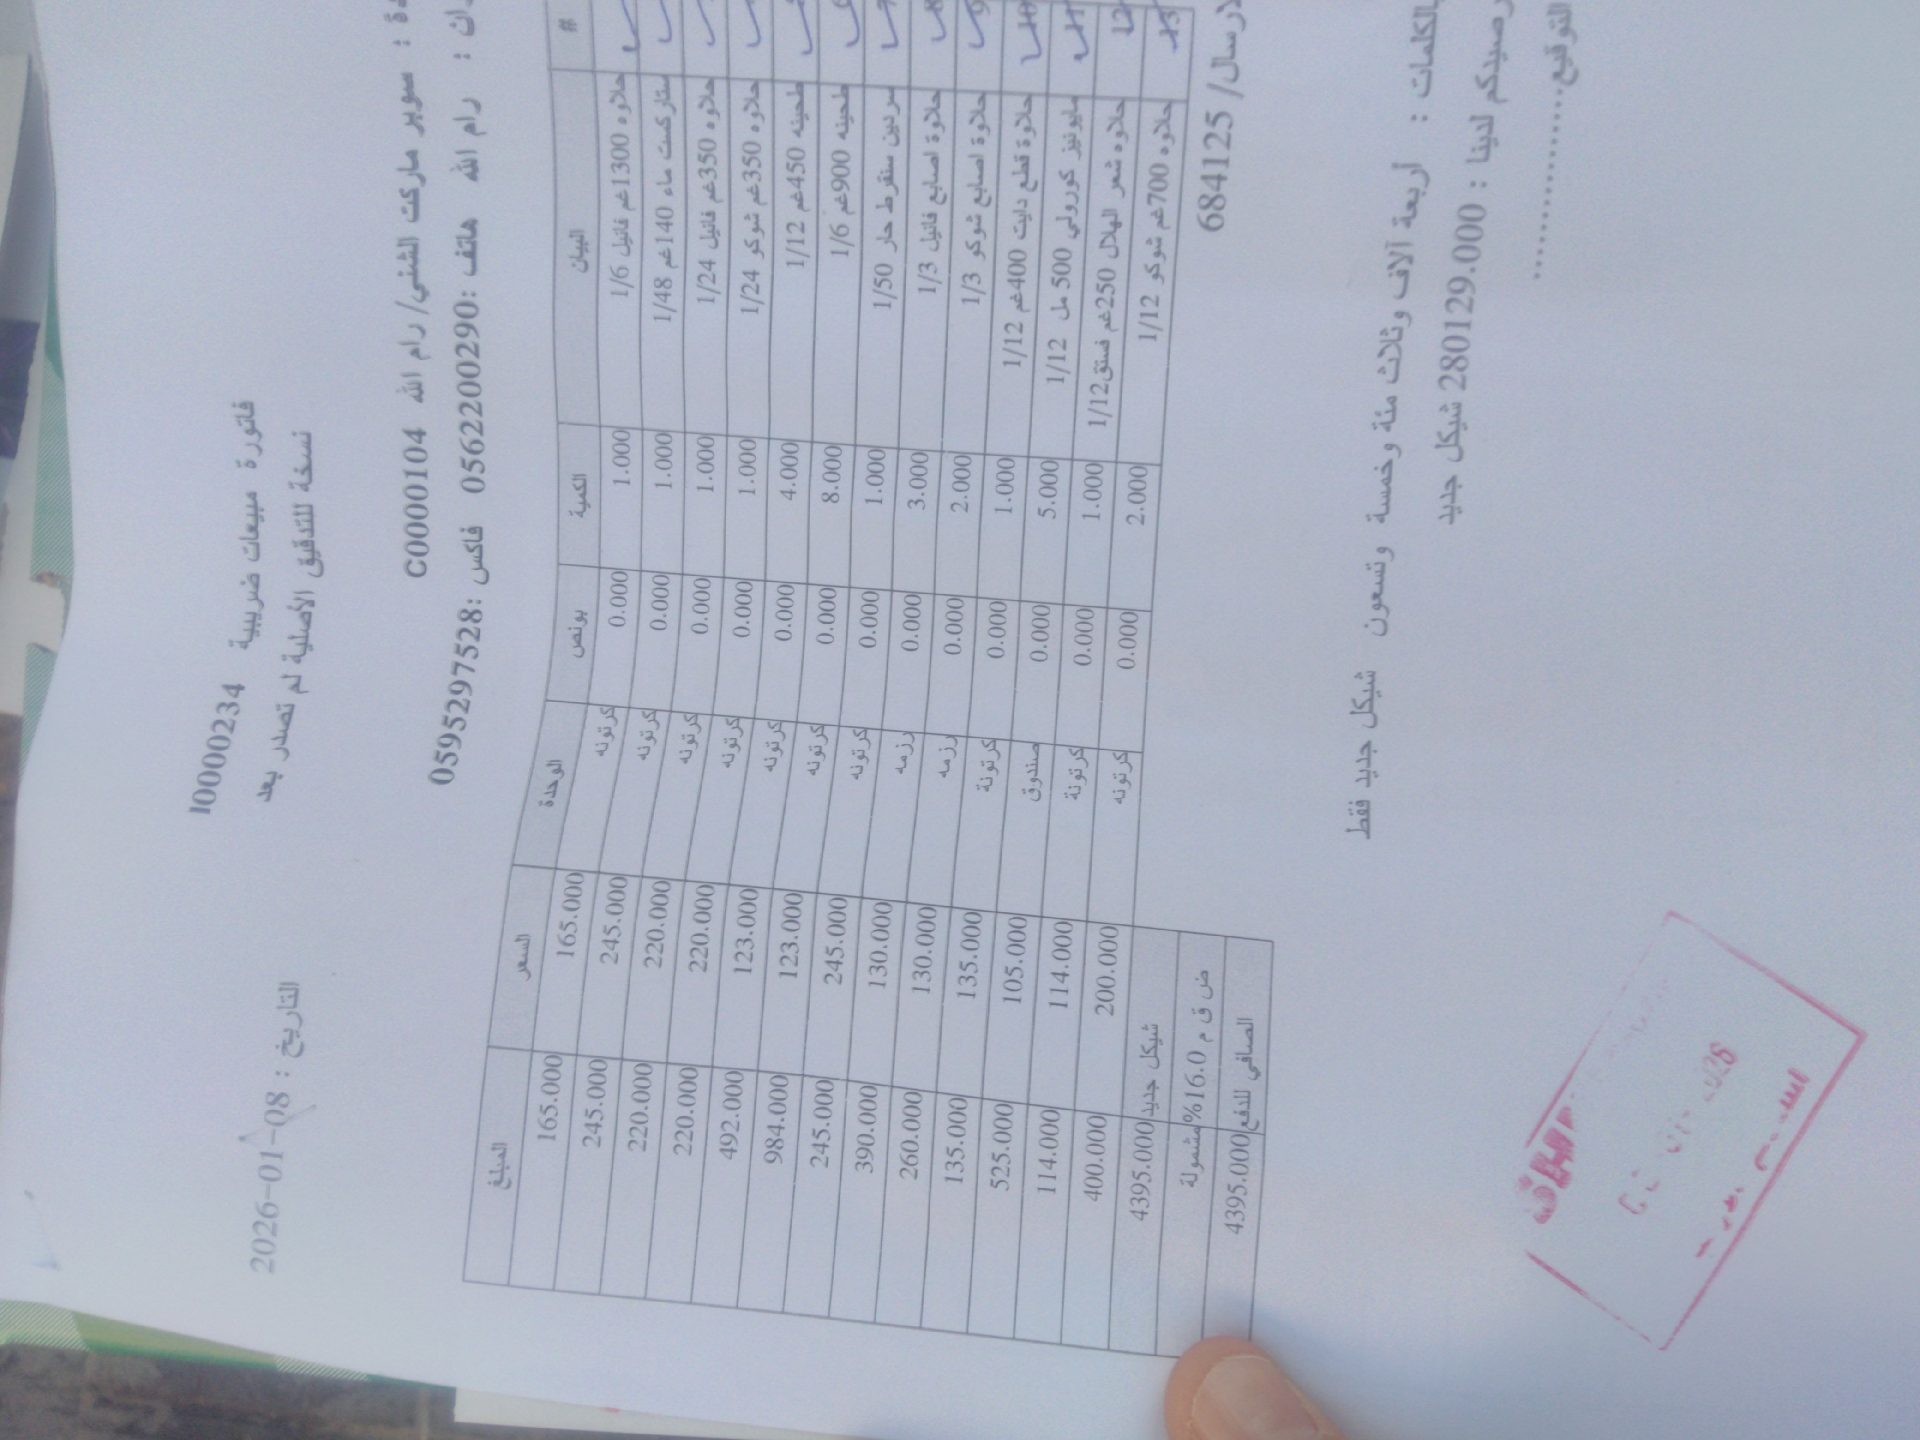 فاتورة مبيعات ضريبية I0000234
نسخة للتدقيق الأصلية لم تصدر بعد
التاريخ : 2026-01-08
سوبر ماركت الشني/ رام الله C0000104
رام الله هاتف :0562200290 فاكس :0595297528
# البيان الكمية بونص الوحدة السعر المبلغ
حلاوه 1300غم فانيل 1/6 1.000 0.000 كرتونه 165.000 165.000
ستاركست ماء 140غم 1/48 1.000 0.000 كرتونه 245.000 245.000
حلاوه 350غم فانيل 1/24 1.000 0.000 كرتونه 220.000 220.000
حلاوه 350غم شوكو 1/24 1.000 0.000 كرتونه 220.000 220.000
طحينه 450غم 1/12 4.000 0.000 كرتونه 123.000 492.000
6 طحينه 900غم 1/6 8.000 0.000 كرتونه 123.000 984.000
7 سردين سنقرط حار 1/50 1.000 0.000 كرتونه 245.000 245.000
8 حلاوة اصابع فانيل 1/3 3.000 0.000 رزمه 130.000 390.000
9 حلاوة اصابع شوكو 1/3 2.000 0.000 رزمه 130.000 260.000
10 حلاوة قطع دايت 400غم 1/12 1.000 0.000 كرتونة 135.000 135.000
11 مايونيز كورولي 500 مل 1/12 5.000 0.000 صندوق 105.000 525.000
12 حلاوه شعر الهلال 250غم فستق1/12 1.000 0.000 كرتونة 114.000 114.000
13 حلاوه 700غم شوكو 1/12 2.000 0.000 كرتونه 200.000 400.000
شيكل جديد 4395.000
ض ق م 16.0% مشمولة
الصافي للدفع 4395.000
684125
بالكلمات : أربعة آلاف وثلاث مئة وخمسة وتسعون شيكل جديد فقط
رصيدكم لدينا : 280129.000 شيكل جديد
التوقيع....................